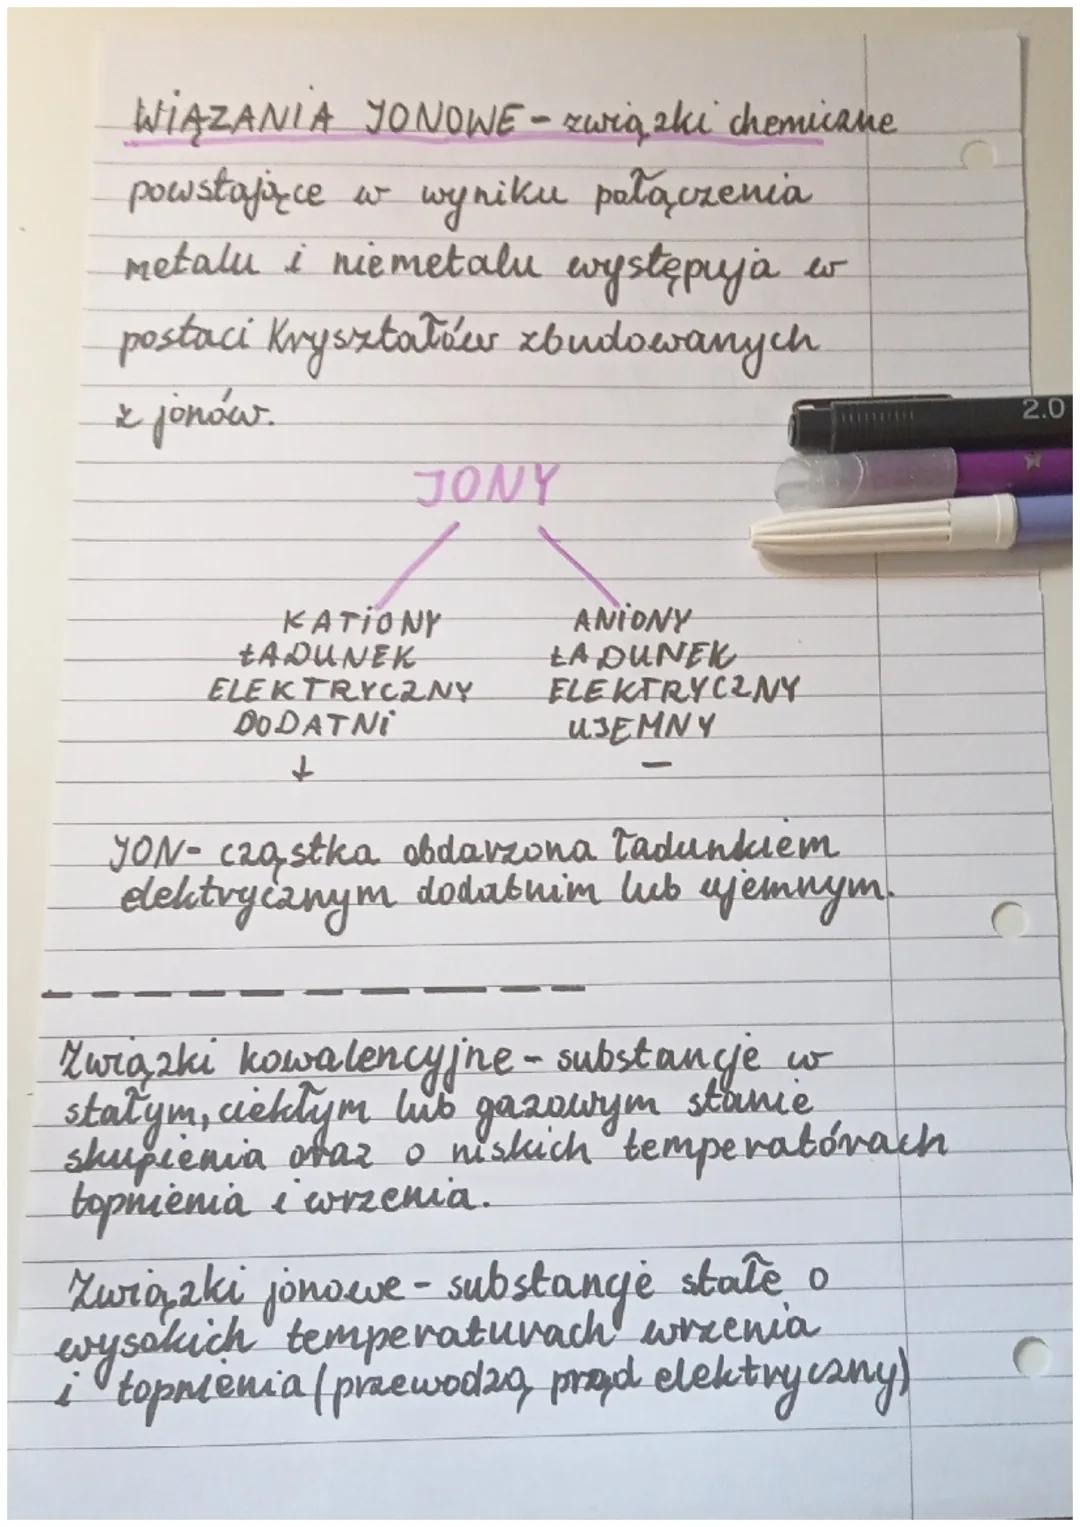 WIĄZANIA JONOWE - związki chemiczne
powstające w wyniku połączenia
metalu i niemetalu występują w
postaci Kryształów zbudowanych
z jonów.
2.0
JONY
KATIONY ANIONY
ŁADUNEK ŁADUNEK
ELEKTRYCZNY ELEKTRYCZNY
DODATNI UJEMNY
+ −
JON- cząstka obdarzona ładunkiem
elektrycznym dodatnim lub ujemnym.
Związki kowalencyjne - substancje w
stałym, ciekłym lub gazowym stanie
skupienia oraz o niskich temperatórach
topnienia i wrzenia.
Związki jonowe - substancje stałe o
wysokich temperaturach wrzenia
i topnienia (przewodzą prąd elektryczny)